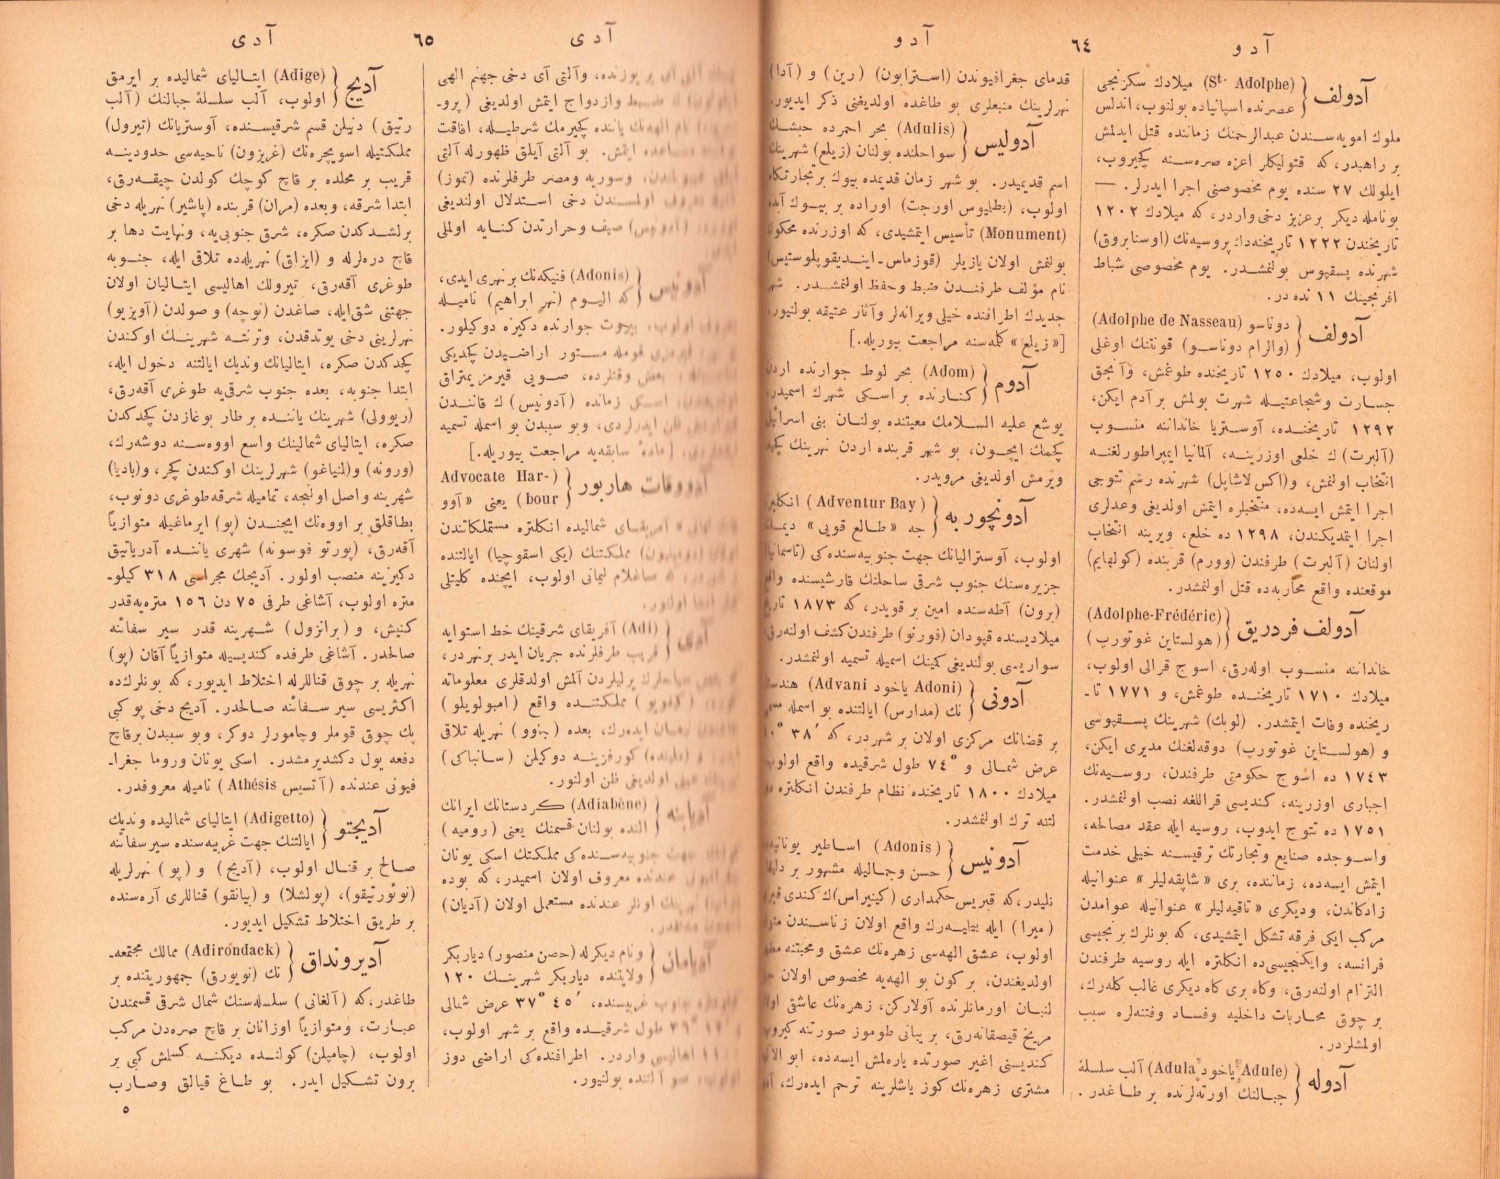 آدو
٦٤
آدو
آدولف (St. Adolphe) میلادك سكزنجی
عصرنده اسپانیاده بولنوب، اندلس
ملوك امویه‌سندن عبدالرحمنك زماننده قتل ایدلمش
بر راهبدر، كه قتولیكلر اعزه صره‌سنه كچیروب،
ایلولك ٢٧ سنده یوم مخصوصنی اجرا ایدرلر. —
بونامله دیكر بر عزیز دخی واردر، كه میلادك ١٢٠٢
تاریخندن ١٢٢٢ تاریخنه‌دك پروسیه‌نك (اوسنابروق)
شهرنده پسقپوس بولنمشدر. یوم مخصوصی شباط
افرنجینك ١١ نده در.
آدولف دوناسو (Adolphe de Nasseau)
(والرام دوناسو) قونتنك اوغلی
اولوب، میلادك ١٢٥٠ تاریخنده طوغمش، وآنجق
جسارت وشجاعتیله شهرت بولمش بر آدم ایكن،
١٢٩٢ تاریخنده، آوستریا خانداننه منسوب
(آلبرت) ك خلعی اوزرینه، آلمانیا ایمپراطورلغنه
انتخاب اولنمش، و(اكس لاشاپل) شهرنده رسم تتوجی
اجرا ایتمش ایسه‌ده، متخیلره ایتمش اولدیغی وعدلری
اجرا ایتمدیكندن، ١٢٩٨ ده خلع، ویرینه انتخاب
اولنان (آلبرت) طرفندن (وورم) قربنده (كولهایم)
موقعنده واقع محاربه‌ده قتل اولنمشدر.
آدولف فردریق (Adolphe-Frédéric)
(هولستاین غوتورپ)
خانداننه منسوب اوله‌رق، اسوج قرالی اولوب،
میلادك ١٧١٠ تاریخنده طوغمش، و ١٧٧١ تا-
ریخنده وفات ایتمشدر. (لوبك) شهرینك پسقپوسی
و (هولستاین غوتورپ) دوقه‌لغنك مدیری ایكن،
١٧٤٣ ده اسوج حكومتی طرفندن، روسیه‌نك
اجباری اوزرینه، كندیسی قراللغه نصب اولنمشدر.
١٧٥١ ده تتوج ایدوب، روسیه ایله عقد مصالحه،
واسوجده صنایع وتجارتك ترقیسنه خیلی خدمت
ایتمش ایسه‌ده، زماننده، بری «شاپقه‌لیلر» عنوانیله
زادكاندن، ودیكری «تاقیه‌لیلر» عنوانیله عوامدن
مركب ایكی فرقه تشكل ایتمشیدی، كه بونلرك برنجیسی
فرانسه، وایكنجیسی‌ده انكلتره ایله روسیه طرفندن
التزام اولنه‌رق، وكاه بری كاه دیكری غالب كله‌رك،
بر چوق محاربات داخلیه وفساد وفتنه‌لره سبب
اولمشلردر.
آدوله (Adule یاخود Adula) آلپ سلسلهٔ
جبالنك اورته‌لرنده بر طاغدر.
قدمای جغرافیوندن (استرابون) (رین) و (آدا)
نهرلرینك منبعلری بو طاغده اولدیغنی ذكر ایدیور.
آدولیس (Adulis) بحر احمرده حبشك
سواحلنده بولنان (زیلع) شهرینك
اسم قدیمیدر. بو شهر زمان قدیمده بیوك بر تجارتكاه
اولوب، (بطلیوس اورجت) اوراده بر بیوك آبده
(Monument) تأسیس ایتمشیدی، كه اوزرنده محكوك
بولنمش اولان یازیلر (قوزماس-ایندیقوپلوستیس)
نام مؤلف طرفندن ضبط وحفظ اولنمشدر. شهر
جدیدك اطرافنده خیلی ویرانه‌لر وآثار عتیقه بولنیور.
[«زیلع» كله‌سنه مراجعت بیوریله.]
آدوم (Adom) بحر لوط جوارنده اردن
كنارنده بر اسكی شهرك اسمیدر.
یوشع علیه السلامك معیتنده بولنان بنی اسرائیل
كچمك ایچون، بو شهر قربنده اردن نهرینك كچید
ویرمش اولدیغی مرویدر.
آدونچور به (Adventur Bay) انكلیز-
جه «طالع قویی» دیمك
اولوب، آوسترالیانك جهت جنوبیه‌سنده‌كی (تاسمانیا)
جزیره‌سنك جنوب شرقی ساحلنك قارشیسنده واقع
(برون) آطه‌سنده امین بر قویدر، كه ١٨٧٣
میلادیسنده قپودان (فورنو) طرفندن كشف اولنه‌رق،
سواریسی بولندیغی كمینك اسمیله تسمیه اولنمشدر.
آدونی (Adoni یاخود Advani)
نك (مدارس) ایالتنده بو اسمله
بر قضانك مركزی اولان بر شهردر، كه
عرض شمالی و ٧٤° طول شرقیده واقع اولوب،
میلادك ١٨٠٠ تاریخنده نظام طرفندن انكلتره
لتنه ترك اولنمشدر.
آدونیس (Adonis) اساطیر یونانیه‌ده
حسن وجمالیله مشهور بر
نلیدر، كه قبریس حكمداری (كینیراس)ك كندی
(میرا) ایله واقع اولان زناسندن
اولوب، عشق الهه‌سی زهره‌نك عشق ومحبتنه مظهر
اولدیغندن، بر كون بو الهه‌یه مخصوص اولان
لنبان اورمانلرنده آولاركن، زهره‌نك عاشقی اولان
مریخ قیصقانه‌رق، بر یبانی طوموز صورتنه كیروب
كندیسنی اغیر صورتده یاره‌لمش ایسه‌ده،
مشتری زهره‌نك كوز یاشلرینه ترحم ایده‌رك،
آدی
٦٥
آدی
یوزنده، وآلتی آی دخی جهنم الهی
وازدواج ایتمش اولدیغی (پرو-
نام الهه‌نك یاننده كچیرمك شرطیله، افاقت
ایتمش. بو آلتی آیلق ظهورله آلتی
وسوریه ومصر طرفلرنده (تموز)
اولمسندن دخی استدلال اولندیغی
صیف وحرارتدن كنایه اولملی
آدونیس (Adonis) فنیكه‌نك بر نهری ایدی،
كه الیوم (نهر ابراهیم) نامیله
بیروت جوارنده دكیزه دوكیلور.
قومله مستور اراضیدن كچدیكی
وقتلرده، صویی قیرمزیمتراق
اسكی زمانده (آدونیس) ك قاننندن
ایدرلردی، وبو سببدن بو اسمله تسمیه
سابقه‌یه مراجعت بیوریله.]
آدووقات هاربور (Advocate Har-
bour) یعنی «آوو
آمریقای شمالیده انكلتره مستملكاتندن
مملكتنك (یكی اسقوچیا) ایالتنده
صاغلام لیمانی اولوب، ایچنده كلیتلی
اولنور.
آدی (Adi) آفریقای شرقینك خط استوایه
قریب طرفلرنده جریان ایدر بر نهر در،
سیاحلرك یرلیلردن آلمش اولدقلری معلوماته
مملكتنده واقع (امبولویلو)
ایده‌رك، بعده (جنوو) نهریله تلاقی
كورفزینه دوكیلن (سانباكی)
اولدیغی ظن اولنور.
آدیابنه (Adiabène) كردستانك ایرانك
النده بولنان قسمنك یعنی (رومیه)
جنوبیه‌سنده‌كی مملكتك اسكی یونان
عندنده معروف اولان اسمیدر، كه بوده
اونلر عندنده مستعمل اولان (آدیان)
آدیامان ونام دیكرله (حصن منصور) دیاربكر
ولایتنده دیاربكر شهرینك ١٢٠
غربیسنده، ٤٥ َ ٣٧° عرض شمالی
طول شرقیده واقع بر شهر اولوب،
اهالیسی واردر. اطرافنده‌كی اراضی دوز
آلتنده بولنیور.
آدیج (Adige) ایتالیای شمالیده بر ایرمق
اولوب، آلپ سلسلهٔ جبالنك (آلپ
رتیق) دنیلن قسم شرقیسنده، آوستریانك (تیرول)
مملكتیله اسویچره‌نك (غریزون) ناحیه‌سی حدودینه
قریب بر محلده بر قاچ كوچك كولدن چیقه‌رق،
ابتدا شرقه، وبعده (مران) قربنده (پاشیر) نهریله دخی
برلشدكدن صكره، شرق جنوبی‌یه، ونهایت دها بر
قاچ دره‌لرله و (ایزاق) نهریله‌ده تلاقی ایله، جنوبه
طوغری آقه‌رق، تیرولك اهالیسی ایتالیان اولان
جهتنی شق‌ایله، صاغدن (نوچه) و صولدن (آویزیو)
نهرلرینی دخی یوتدقدن، وترنته شهرینك اوكندن
كچدكدن صكره، ایتالیانك وندیك ایالتنه دخول ایله،
ابتدا جنوبه، بعده جنوب شرقی‌یه طوغری آقه‌رق،
(ریوولی) شهرینك یاننده بر طار بوغازدن كچدكدن
صكره، ایتالیای شمالینك واسع اووه‌سنه دوشه‌رك،
(ورونه) و(لنیاغو) شهرلرینك اوكندن كچر، و(بادیا)
شهرینه واصل اولنجه، تمامیله شرقه طوغری دونوب،
بطاقلق بر اووه‌نك ایچندن (پو) ایرماغیله متوازیاً
آقه‌رق، (پورتو فوسونه) شهری یاننده آدریاتیق
دكیزینه منصب اولور. آدیجك مجراسی ٣١٨ كیلو-
متره اولوب، آشاغی طرفی ٧٥ دن ١٥٦ متره‌یه‌قدر
كنیش، و (برانزول) شهرینه قدر سیر سفائنه
صالحدر. آشاغی طرفده كندیسیله متوازیاً آقان (پو)
نهریله بر چوق قناللرله اختلاط ایدیور، كه بونلرك‌ده
اكثریسی سیر سفائنه صالحدر. آدیج دخی پو كبی
پك چوق قوملر وچامورلر دوكر، وبو سببدن برقاچ
دفعه یول دكشدیرمشدر. اسكی یونان وروما جغرا-
فیونی عندنده (آتسیس Athésis) نامیله معروفدر.
آدیجتو (Adigetto) ایتالیای شمالیده وندیك
ایالتنك جهت غربیه‌سنده سیر سفائنه
صالح بر قنال اولوب، (آدیج) و (پو) نهرلریله
(نوتورتیقو)، (پولشلا) و (بیانقو) قناللری آره‌سنده
بر طریق اختلاط تشكیل ایدیور.
آدیرونداق (Adirondack) ممالك مجتمعه-
نك (نویورق) جمهوریتنده بر
طاغدر، كه (آلغانی) سلسله‌سنك شمال شرقی قسمندن
عبارت، ومتوازیاً اوزانان بر قاچ صره‌دن مركب
اولوب، (چامپلن) كولنده دیكنه كسلش كبی بر
برون تشكیل ایدر. بو طاغ قیالق وصارپ
٥